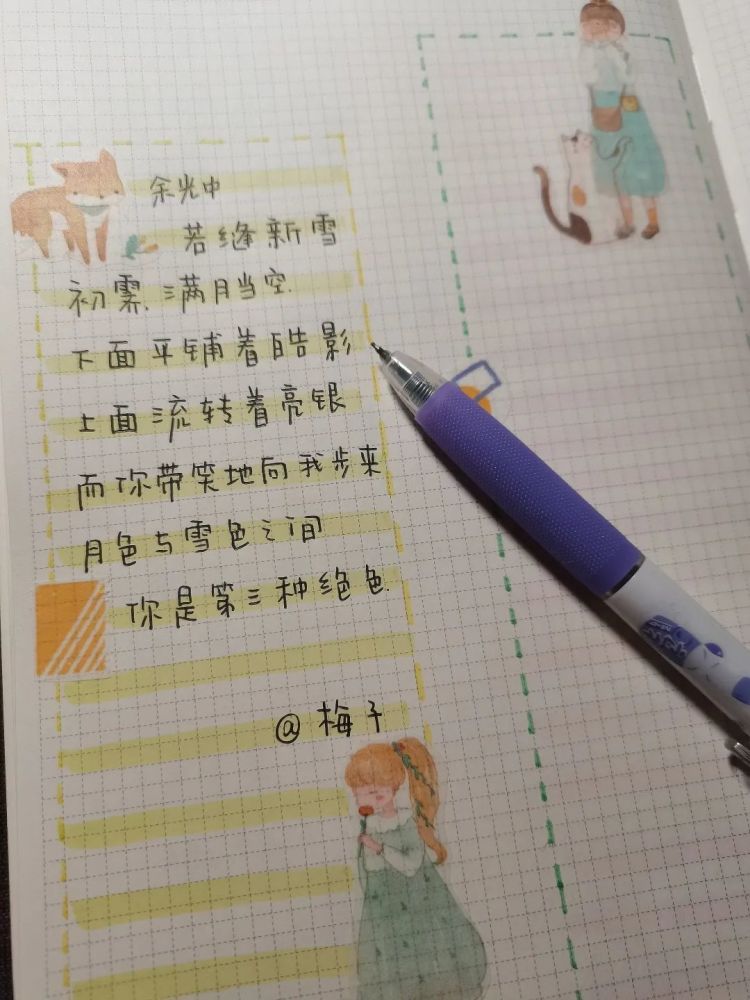 余光中
若缝新雪
初霁,满月当空.
下面平铺着皓影
上面流转着亮银
而你带笑地向我步来
月色与雪色之间
你是第三种绝色.
@梅子